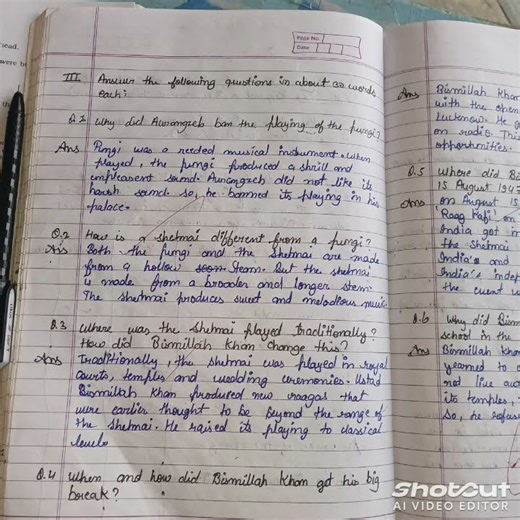 ead.
were b
th
Page No.
Date
III Answer the following questions in about 30 words
each:
Q.1 Why did Aurangzeb ban the playing of the pungi?
Ans Pungi was a reeded musical instrument. When
played, the pungi produced a shrill and
unpleasent sound. Aurangzeb did not like its
harsh sound. so, he banned its playing in his
palace.
Q.2 How is a shehnai different from a pungi?
Ans Both the pungi and the Shehnai are made
from a hollow stem. But the shehnai
is made from a broader and longer stem.
The shehnai produces sweet and melodious music.
Q.3 Where was the Shehnai played traditionally?
How did Bismillah Khan change this?
Ans Traditionally, the shehnai was played in royal
courts, temples and wedding ceremonies. Ustad
Bismillah Khan produced new raagas that
were earlier thought to be beyond the range of
the Shehnai. He raised its playing to classical
level.
Q.4 When and how did Bismillah Khan got his big
break?
Ans Bismillah Khan
with the open
Lucknow. He g
on radio. This
opportunities.
Q.5 Where did B
15 August 194
Ans on August 15,
Raag Kafi on
India got in
the Shehnai
India's and
India's indep
the event w
Q.6 Why did Bism
school in the
Ans Bismillah Khan
yearned to
not live aw
its temples,
So, he refus
ShotCut
AI VIDEO EDITOR